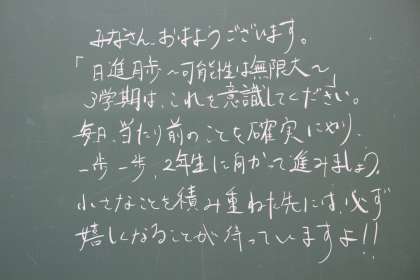 みなさん、おはようございます。
「日進月歩～可能性は無限大～」
3学期は、これを意識してください。
毎日、当たり前のことを確実にやり、
一歩一歩、2年生に向かって進みましょう。
小さなことを積み重ねた先には、必ず
嬉しくなることが待っていますよ!!